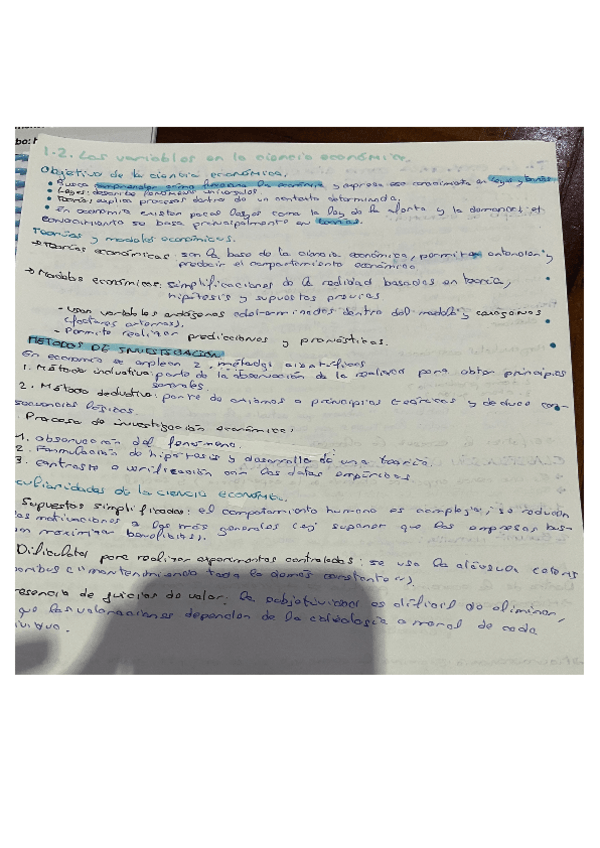 1.2. Las variables en la ciencia económica.
Objetivo de la ciencia económica.
• Busca comprender cómo funciona la economía y expresa ese conocimiento en leyes y teorías
• Leyes: describe fenómenos universales
• Teorías: explica procesos dentro de un contexto determinado;
• En economía existen pocas leyes como la ley de la oferta y la demanda; el
conocimiento se basa principalmente en teorías.
Teorías y modelos económicos.
→ Teorías económicas: son la base de la ciencia económica, permiten entender y
predecir el comportamiento económico
→ Modelos económicos: simplificaciones de la realidad basados en teoría,
hipótesis y supuestos previos
- usan variables endógenas (determinados dentro del modelo y exógenas
(factores externos).
- Permite realizar predicciones y pronósticos.
MÉTODOS DE INVESTIGACIÓN
En economía se emplean 2 métodos científicos
1. Método inductivo: parte de la observación de la realidad para obter principios
generales
2. Método deductivo: parte de axiomas o principios teóricos y deduce con-
secuencias lógicas.
Proceso de investigación económica:
1. observación del fenómeno.
2. Formulación de hipótesis y desarrollo de una teoría.
3. contraste o verificación con los datos empíricos
culiaridades de la ciencia económica.
Supuestos simplificados: el comportamiento humano es complejo, se reducen
las motivaciones a las más generales (ej suponer que las empresas bus-
an maximizar beneficios).
Dificultad para realizar experimentos controlados: se usa la cláusula ceteris
paribus ("manteniendo todo lo demás constante").
resencia de juicios de valor: la subjetividad es difícil de eliminar,
que las valoraciones dependen de la ideología o moral de cada